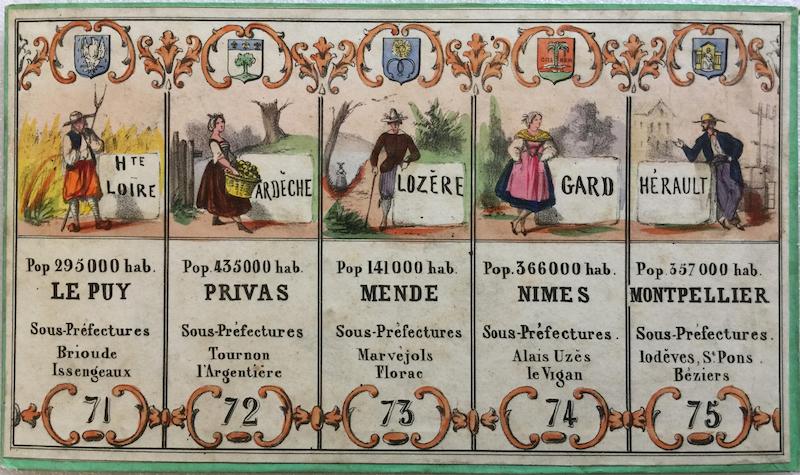 Hte
LOIRE
Pop 295000 hab.
LE PUY
Sous-Préfectures
Brioude
Issengeaux
71
ARDÈCHE
Pop. 435000 hab.
PRIVAS
Sous-Préfectures
Tournon
l'Argentière
72
LOZÈRE
Pop 141000 hab.
MENDE
Sous-Préfectures
Marvejols
Florac
73
GARD
Pop. 366000 hab.
NIMES
Sous-Préfectures.
Alais Uzès
le Vigan
74
HÉRAULT
Pop. 357000 hab.
MONTPELLIER
Sous-Préfectures.
lodèves, St Pons.
Béziers
75